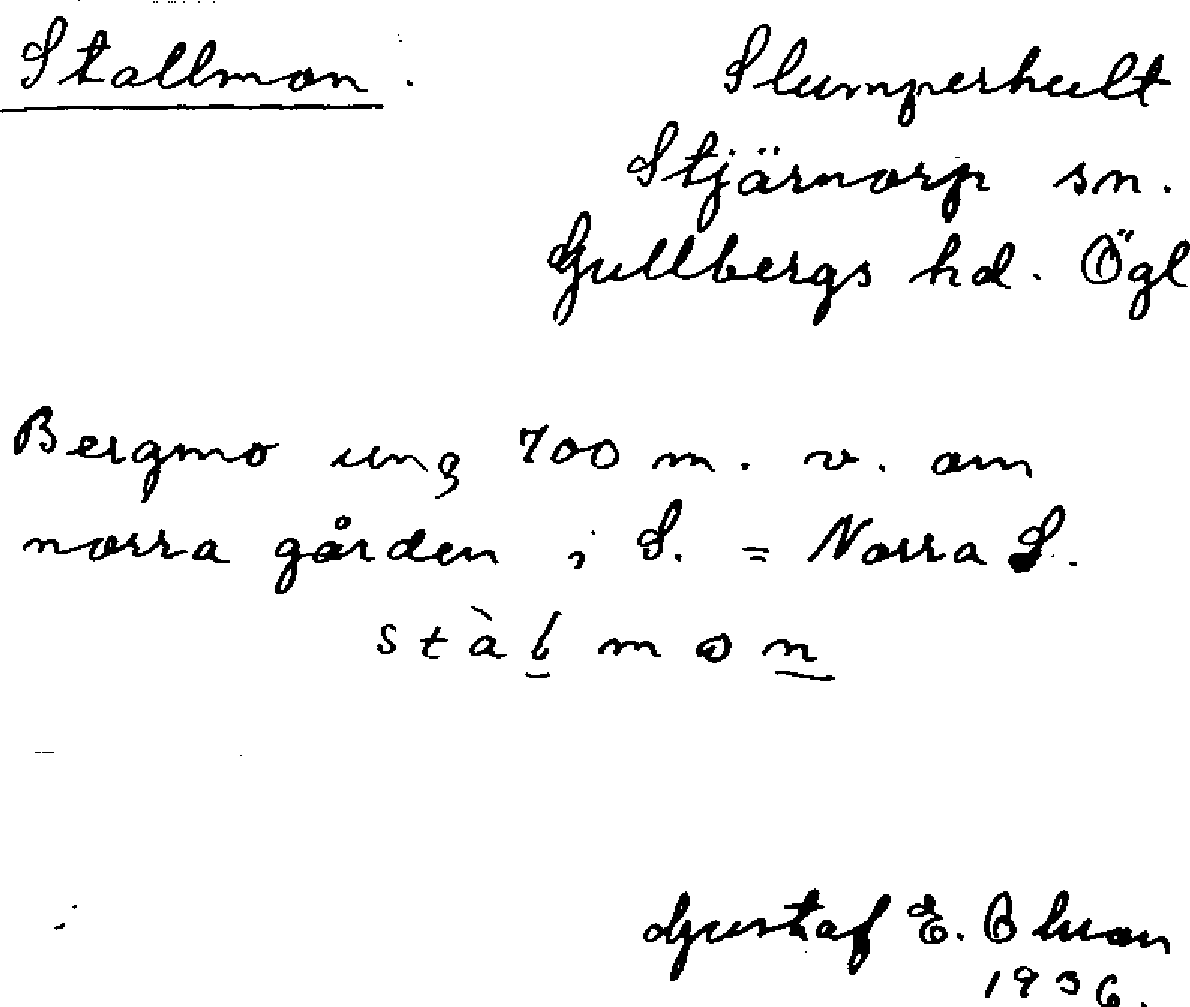 Stallmon. Slumperhult
Stjärnorp sn.
Gullbergs hd. Ögl
Bergmo ung 700 m. v. om
norra gården i S. = Norra S.
stàlmon
Gustaf E. Olson
1936.